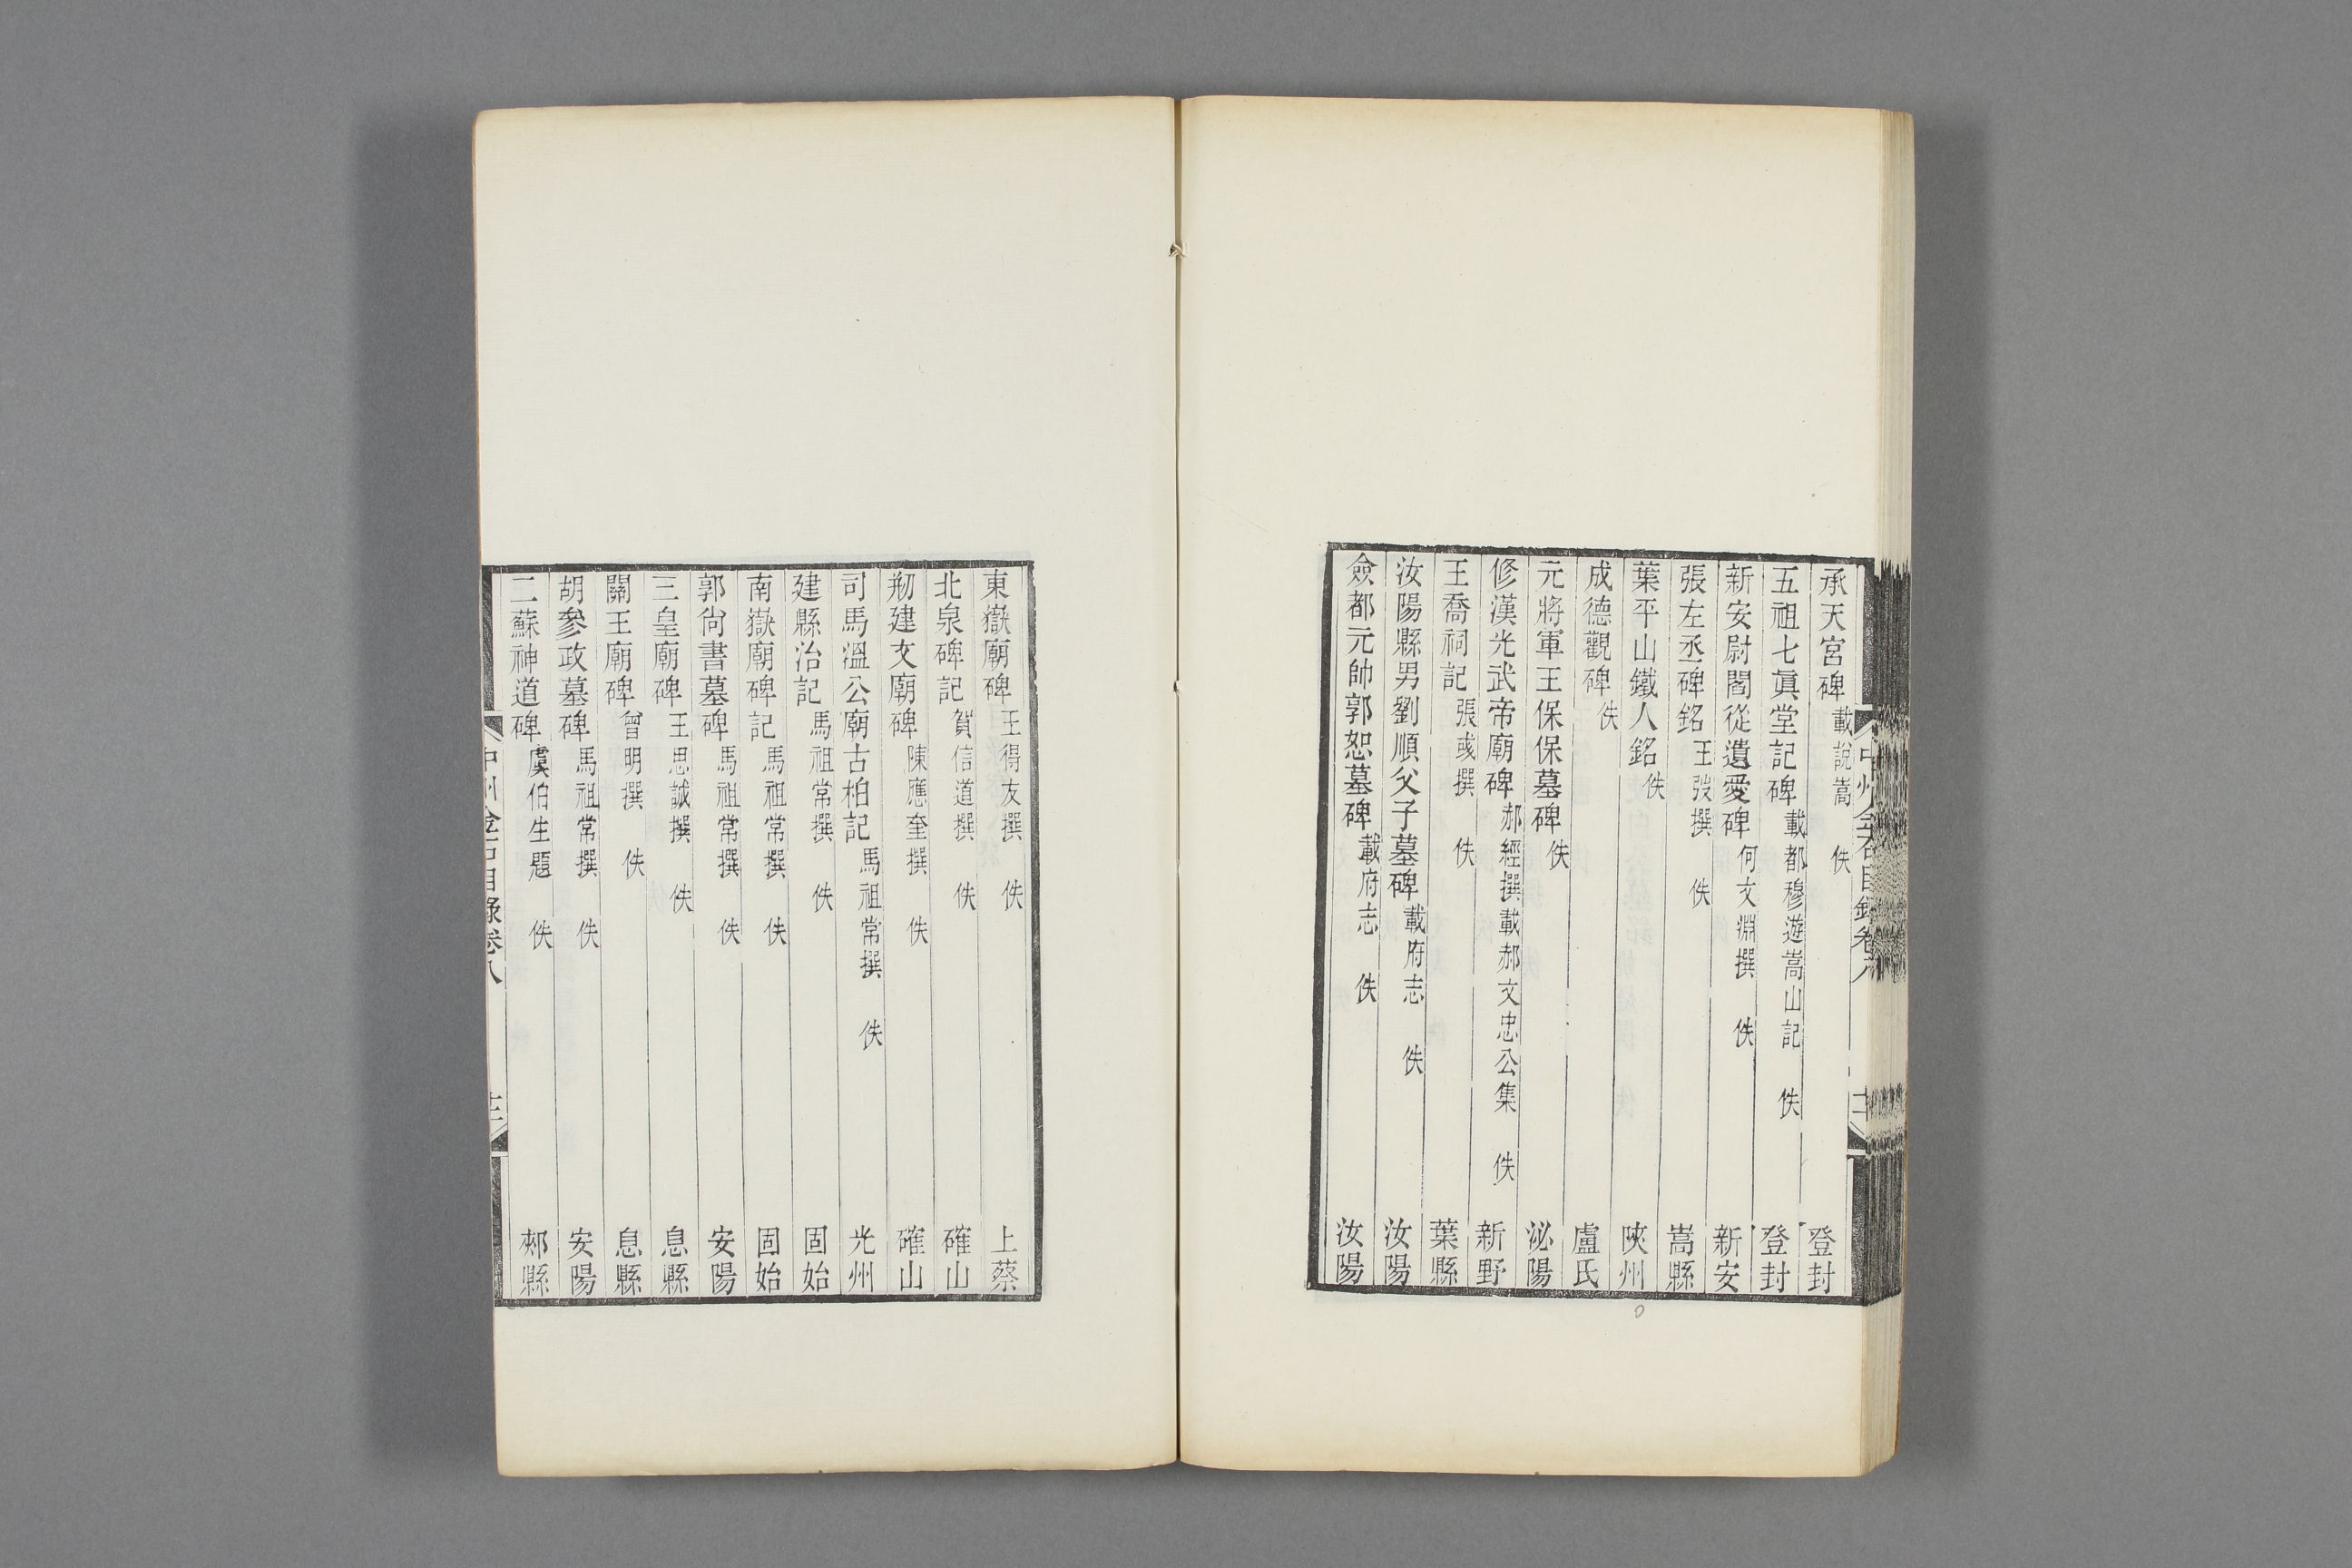 承天宮碑 載說嵩 佚 登封
五祖七眞堂記碑 載都穆遊嵩山記 佚 登封
新安尉閻從遺愛碑 何文淵撰 佚 新安
張左丞碑銘 王弢撰 佚 嵩縣
葉平山鐵人銘 佚 陝州
成德觀碑 佚 盧氏
元將軍王保保墓碑 佚 泌陽
修漢光武帝廟碑 郝經撰載郝文忠公集 佚 新野
王喬祠記 張彧撰 佚 葉縣
汝陽縣男劉順父子墓碑 載府志 佚 汝陽
僉都元帥郭恕墓碑 載府志 佚 汝陽
東嶽廟碑 王得友撰 佚 上蔡
北泉碑記 賀信道撰 佚 確山
剏建文廟碑 陳應奎撰 佚 確山
司馬溫公廟古柏記 馬祖常撰 佚 光州
建縣治記 馬祖常撰 佚 固始
南嶽廟碑記 馬祖常撰 佚 固始
郭尙書墓碑 馬祖常撰 佚 安陽
三皇廟碑 王思誠撰 佚 息縣
關王廟碑 曾明撰 佚 息縣
胡參政墓碑 馬祖常撰 佚 安陽
二蘇神道碑 虞伯生題 佚 郟縣
中州金石目錄卷八